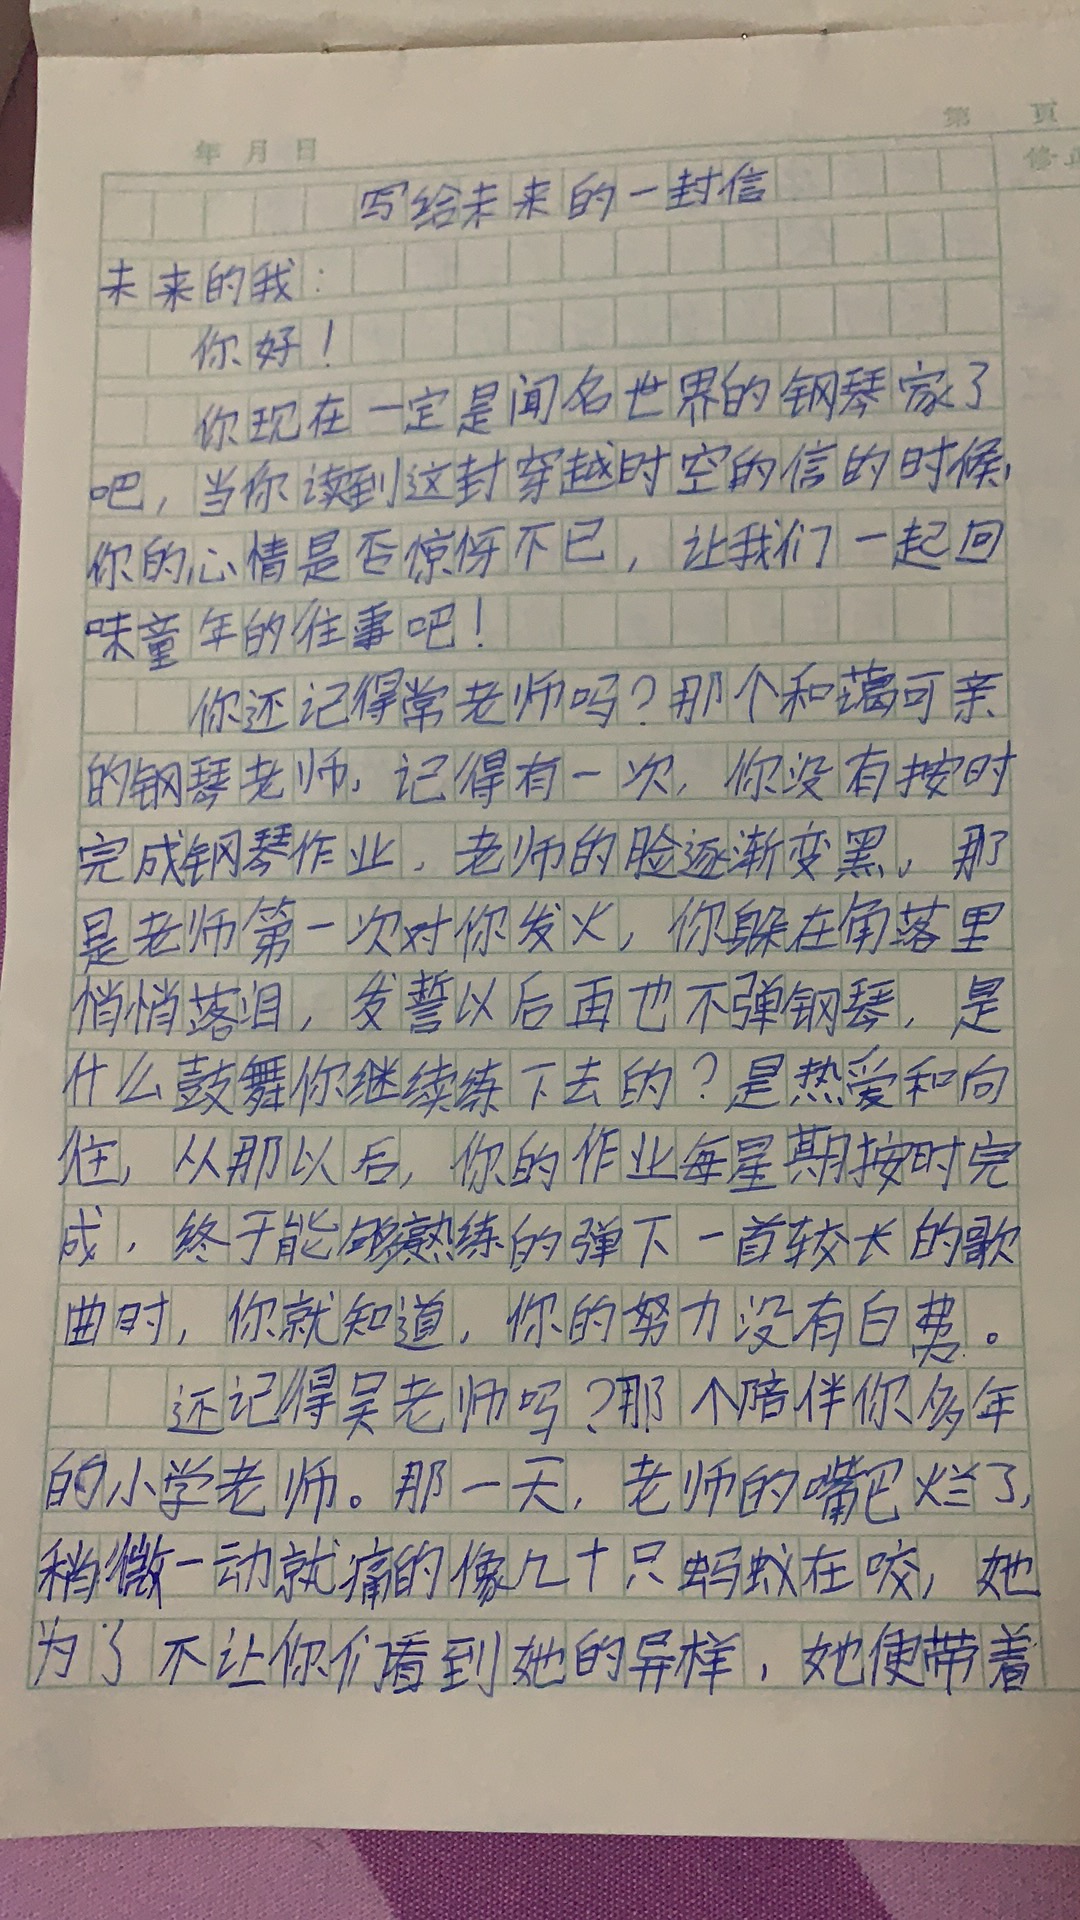 第 页
年 月 日
修正
写给未来的一封信
未来的我:
你好!
你现在一定是闻名世界的钢琴家了
吧,当你读到这封穿越时空的信的时候,
你的心情是否惊伢不已,让我们一起回
味童年的往事吧!
你还记得常老师吗?那个和蔼可亲
的钢琴老师,记得有一次,你没有按时
完成钢琴作业,老师的脸逐渐变黑,那
是老师第一次对你发火,你躲在角落里
悄悄落泪,发誓以后再也不弹钢琴,是
什么鼓舞你继续练下去的?是热爱和向
往,从那以后,你的作业每星期按时完
成,终于能够熟练的弹下一首较长的歌
曲时,你就知道,你的努力没有白费。
还记得吴老师吗?那个陪伴你多年
的小学老师。那一天,老师的嘴巴烂了,
稍微一动就痛的像几十只蚂蚁在咬,她
为了不让你们看到她的异样,她便带着